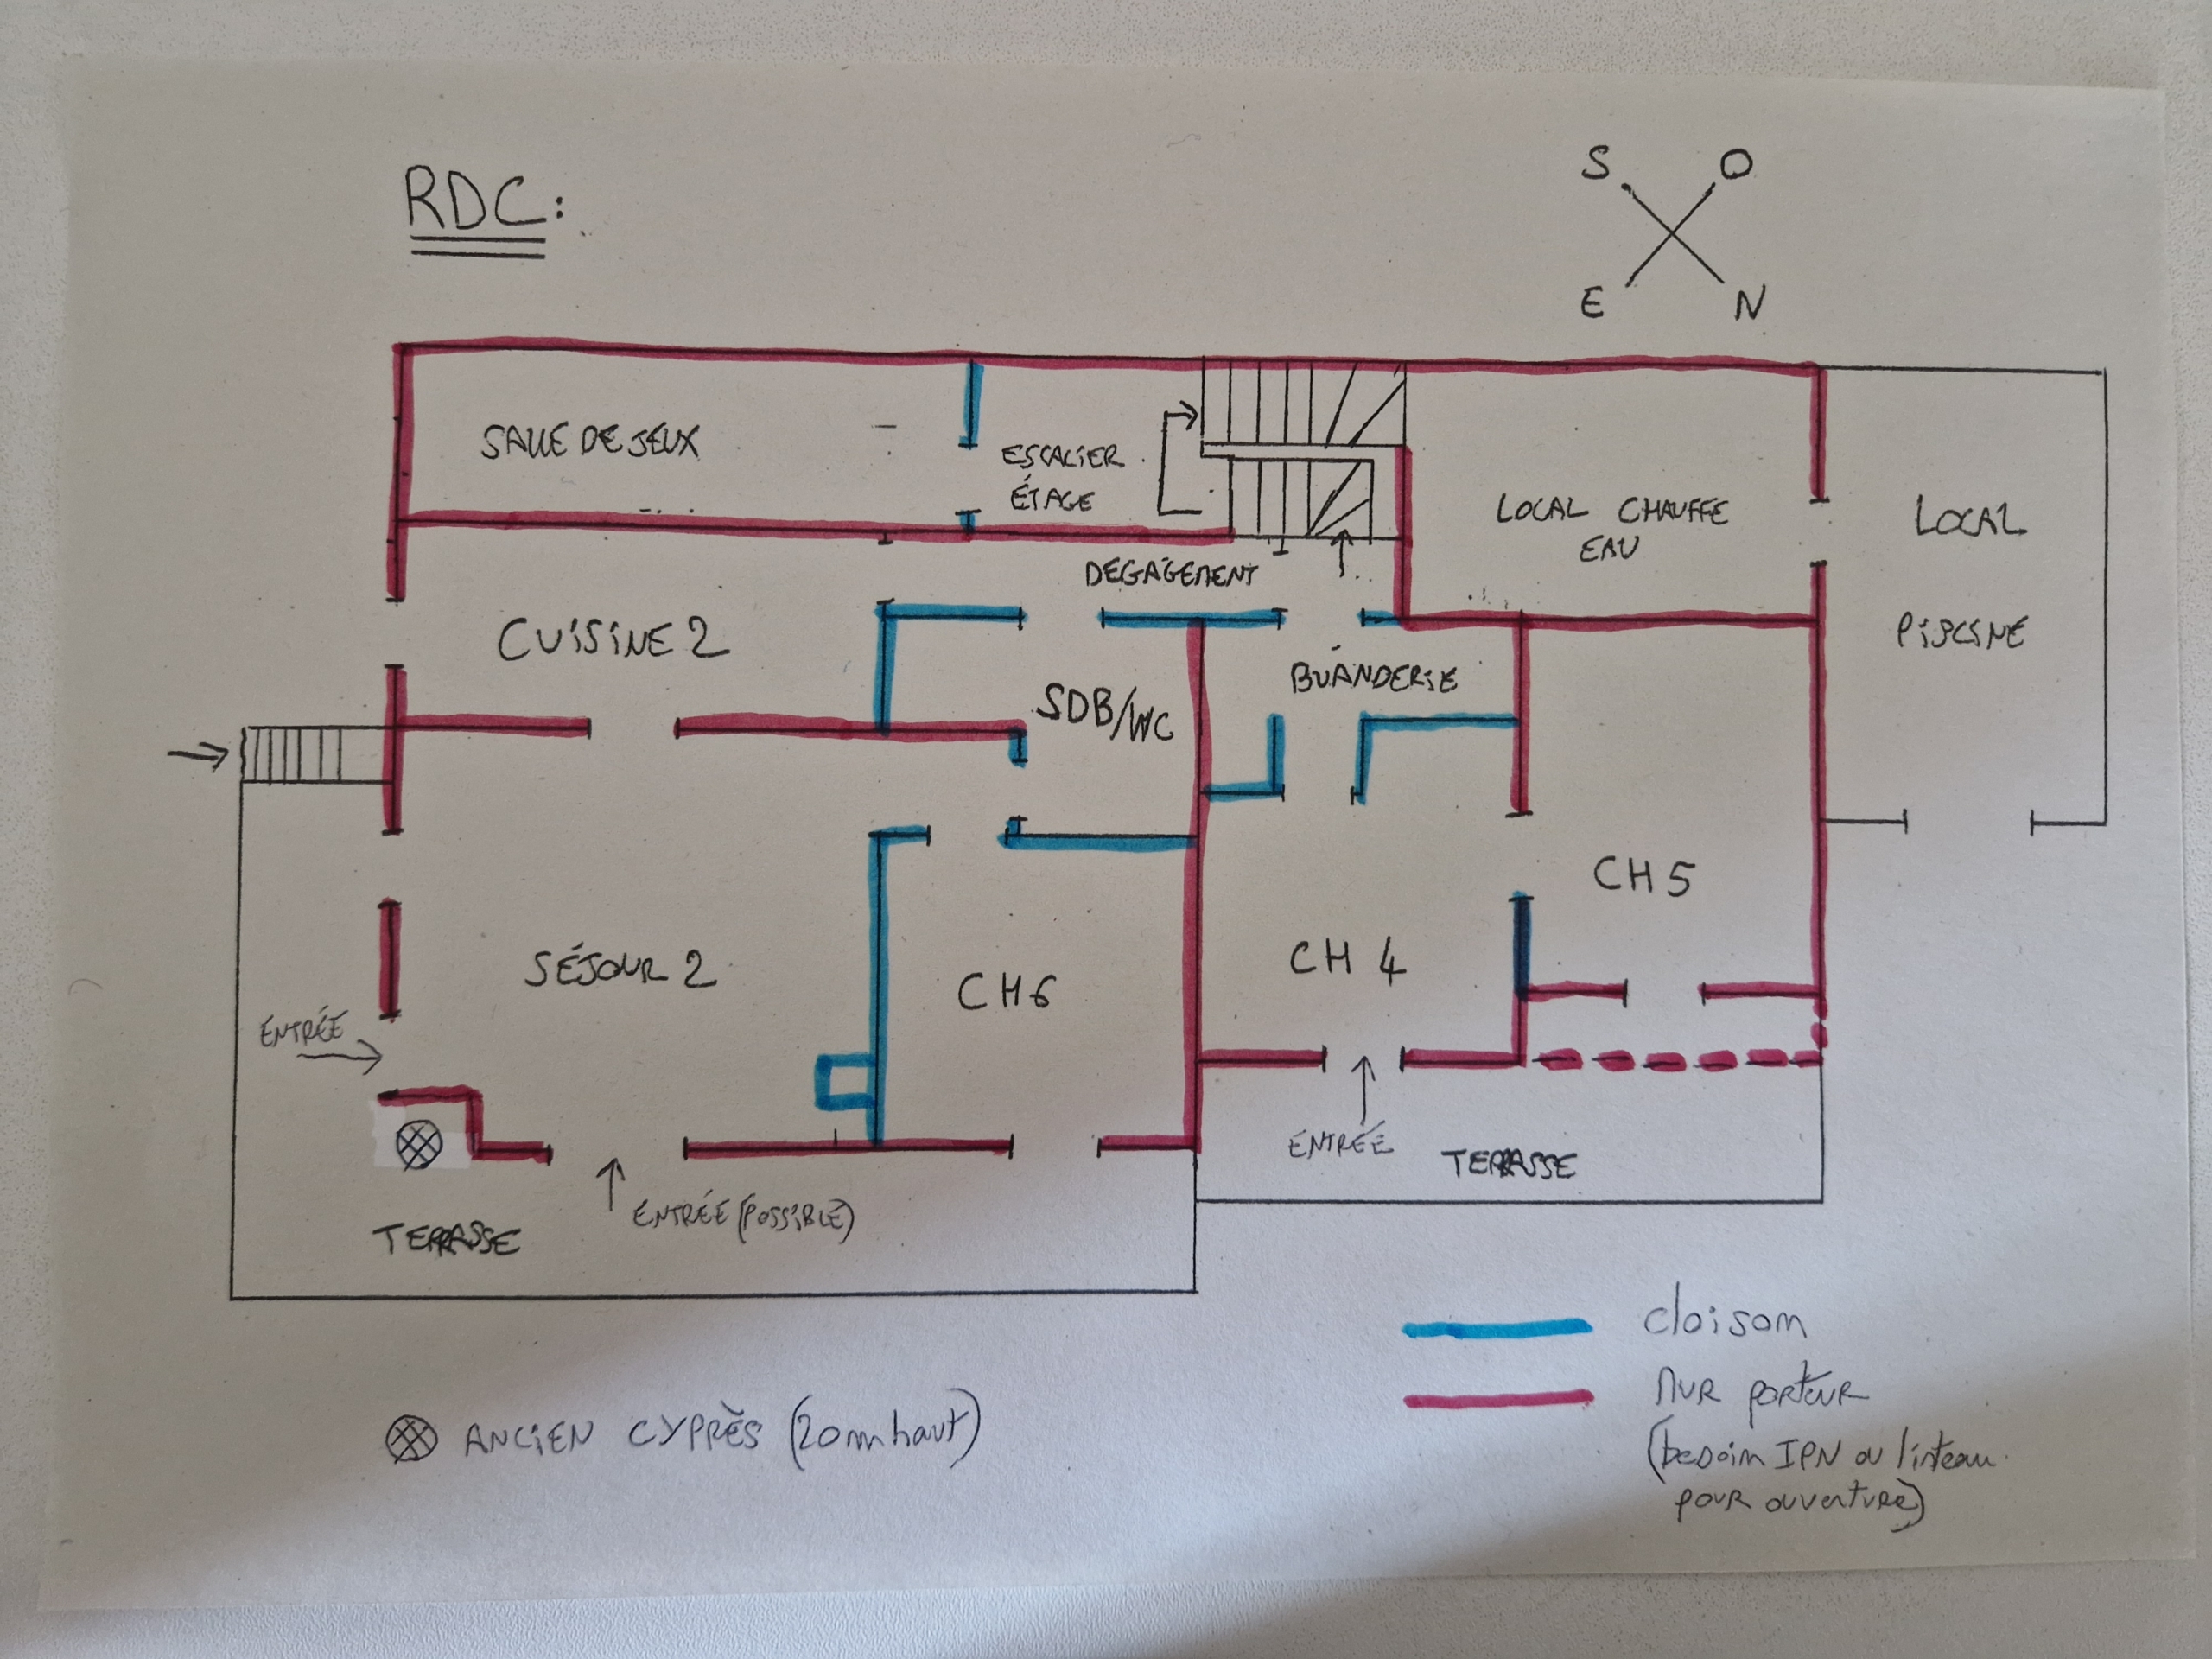 RDC:
S O
E N
SALLE DE JEUX
ESCALIER
ÉTAGE
LOCAL CHAUFFE
EAU
LOCAL
PISCINE
DEGAGEMENT
CUISINE 2
SDB/WC
BUANDERIE
CH 5
SÉJOUR 2
CH 6
CH 4
ENTRÉE
ENTRÉE
TERRASSE
ENTRÉE (POSSIBLE)
TERRASSE
cloison
MUR porteur
(besoin IPN ou linteau
pour ouverture)
ANCIEN CYPRÈS (20m haut)